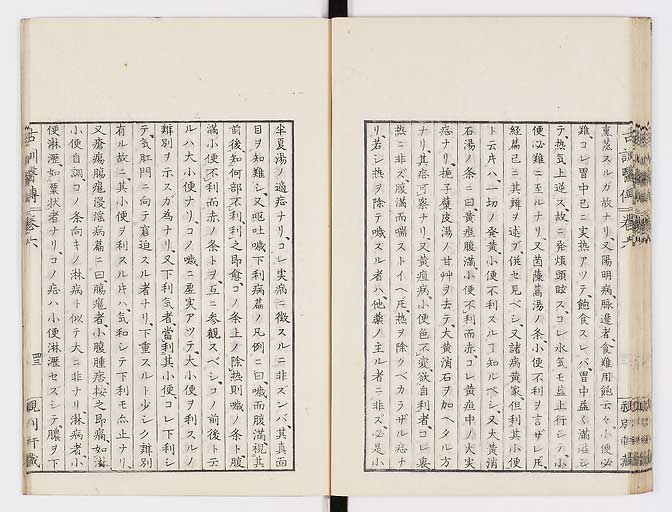 熏蒸スルガ故ナリ、又陽明病脉遲者、食難用飽云々小便必
難コレ胃中已ニ実熱アツテ、飽食スレバ、胃中益々満溢シ
テ、熱気上逆ス、故ニ発煩頭眩スコレ水気モ益上行シテ、小
便必難ニ至ルナリ、又茵蔯蒿湯ノ条、小便不利ヲ言ザレ𪜈、
経篇已ニ其辨ヲ述ブ、併セ見ベシ、又諸病黄家、但利其小便
ト云片ハ、一切ノ発黄小便不利スルヿ知ルベシ、又大黄消
石湯ノ条ニ曰、黄疸腹満小便不利而赤、コレ黄疸中ノ大実
症ナリ、梔子蘗皮湯ノ甘艸ヲ去テ、大黄消石ヲ加ヘタル方
ナリ、其症可察ナリ、又黄疸病小便色不変欲自利者、コレ裏
熱ニ非ズ、腹満而喘ストイヘ𪜈、熱ヲ除クベカラザル症ナ
リ、若シ熱ヲ除テ噦スル者ハ、他薬ノ主ル者ニ非ズ、必是小
半夏湯ノ適症ナリ、コレ実病ニ徴スルニ非ズンバ、其真面
目ヲ知難シ、又嘔吐噦下利病篇ノ凡例ニ曰、噦而腹満視其
前後知何部不利、利之即愈コノ条上ノ除熱則噦ノ条ト、腹
満小便不利而赤ノ条トヲ、互ニ参観スベシ、コノ前後ト云
ルハ大小便ナリ、コノ噦ニ虚実アツテ、大小便ヲ利スルノ
辨別ヲ示スガ為ナリ、又下利気者、當利其小便、コレ下利シ
テ、気肛門ニ向テ窘迫スル者ナリ、下重スルト少シク辨別
有ル故ニ、其小便ヲ利スル片ハ、気和シテ下利モ亦止ナリ、
又瘡瘍腸癰浸淫病篇ニ曰、腸癰者、小腹腫痞、按之即痛如淋
小便自調コノ条向キノ淋病ト似テ大ニ非ナリ、淋病者、小
便淋瀝如粟状者ナリ、コノ症ハ小便淋瀝セズシテ、膿ヲ下
古訓醫傳 巻六
四三